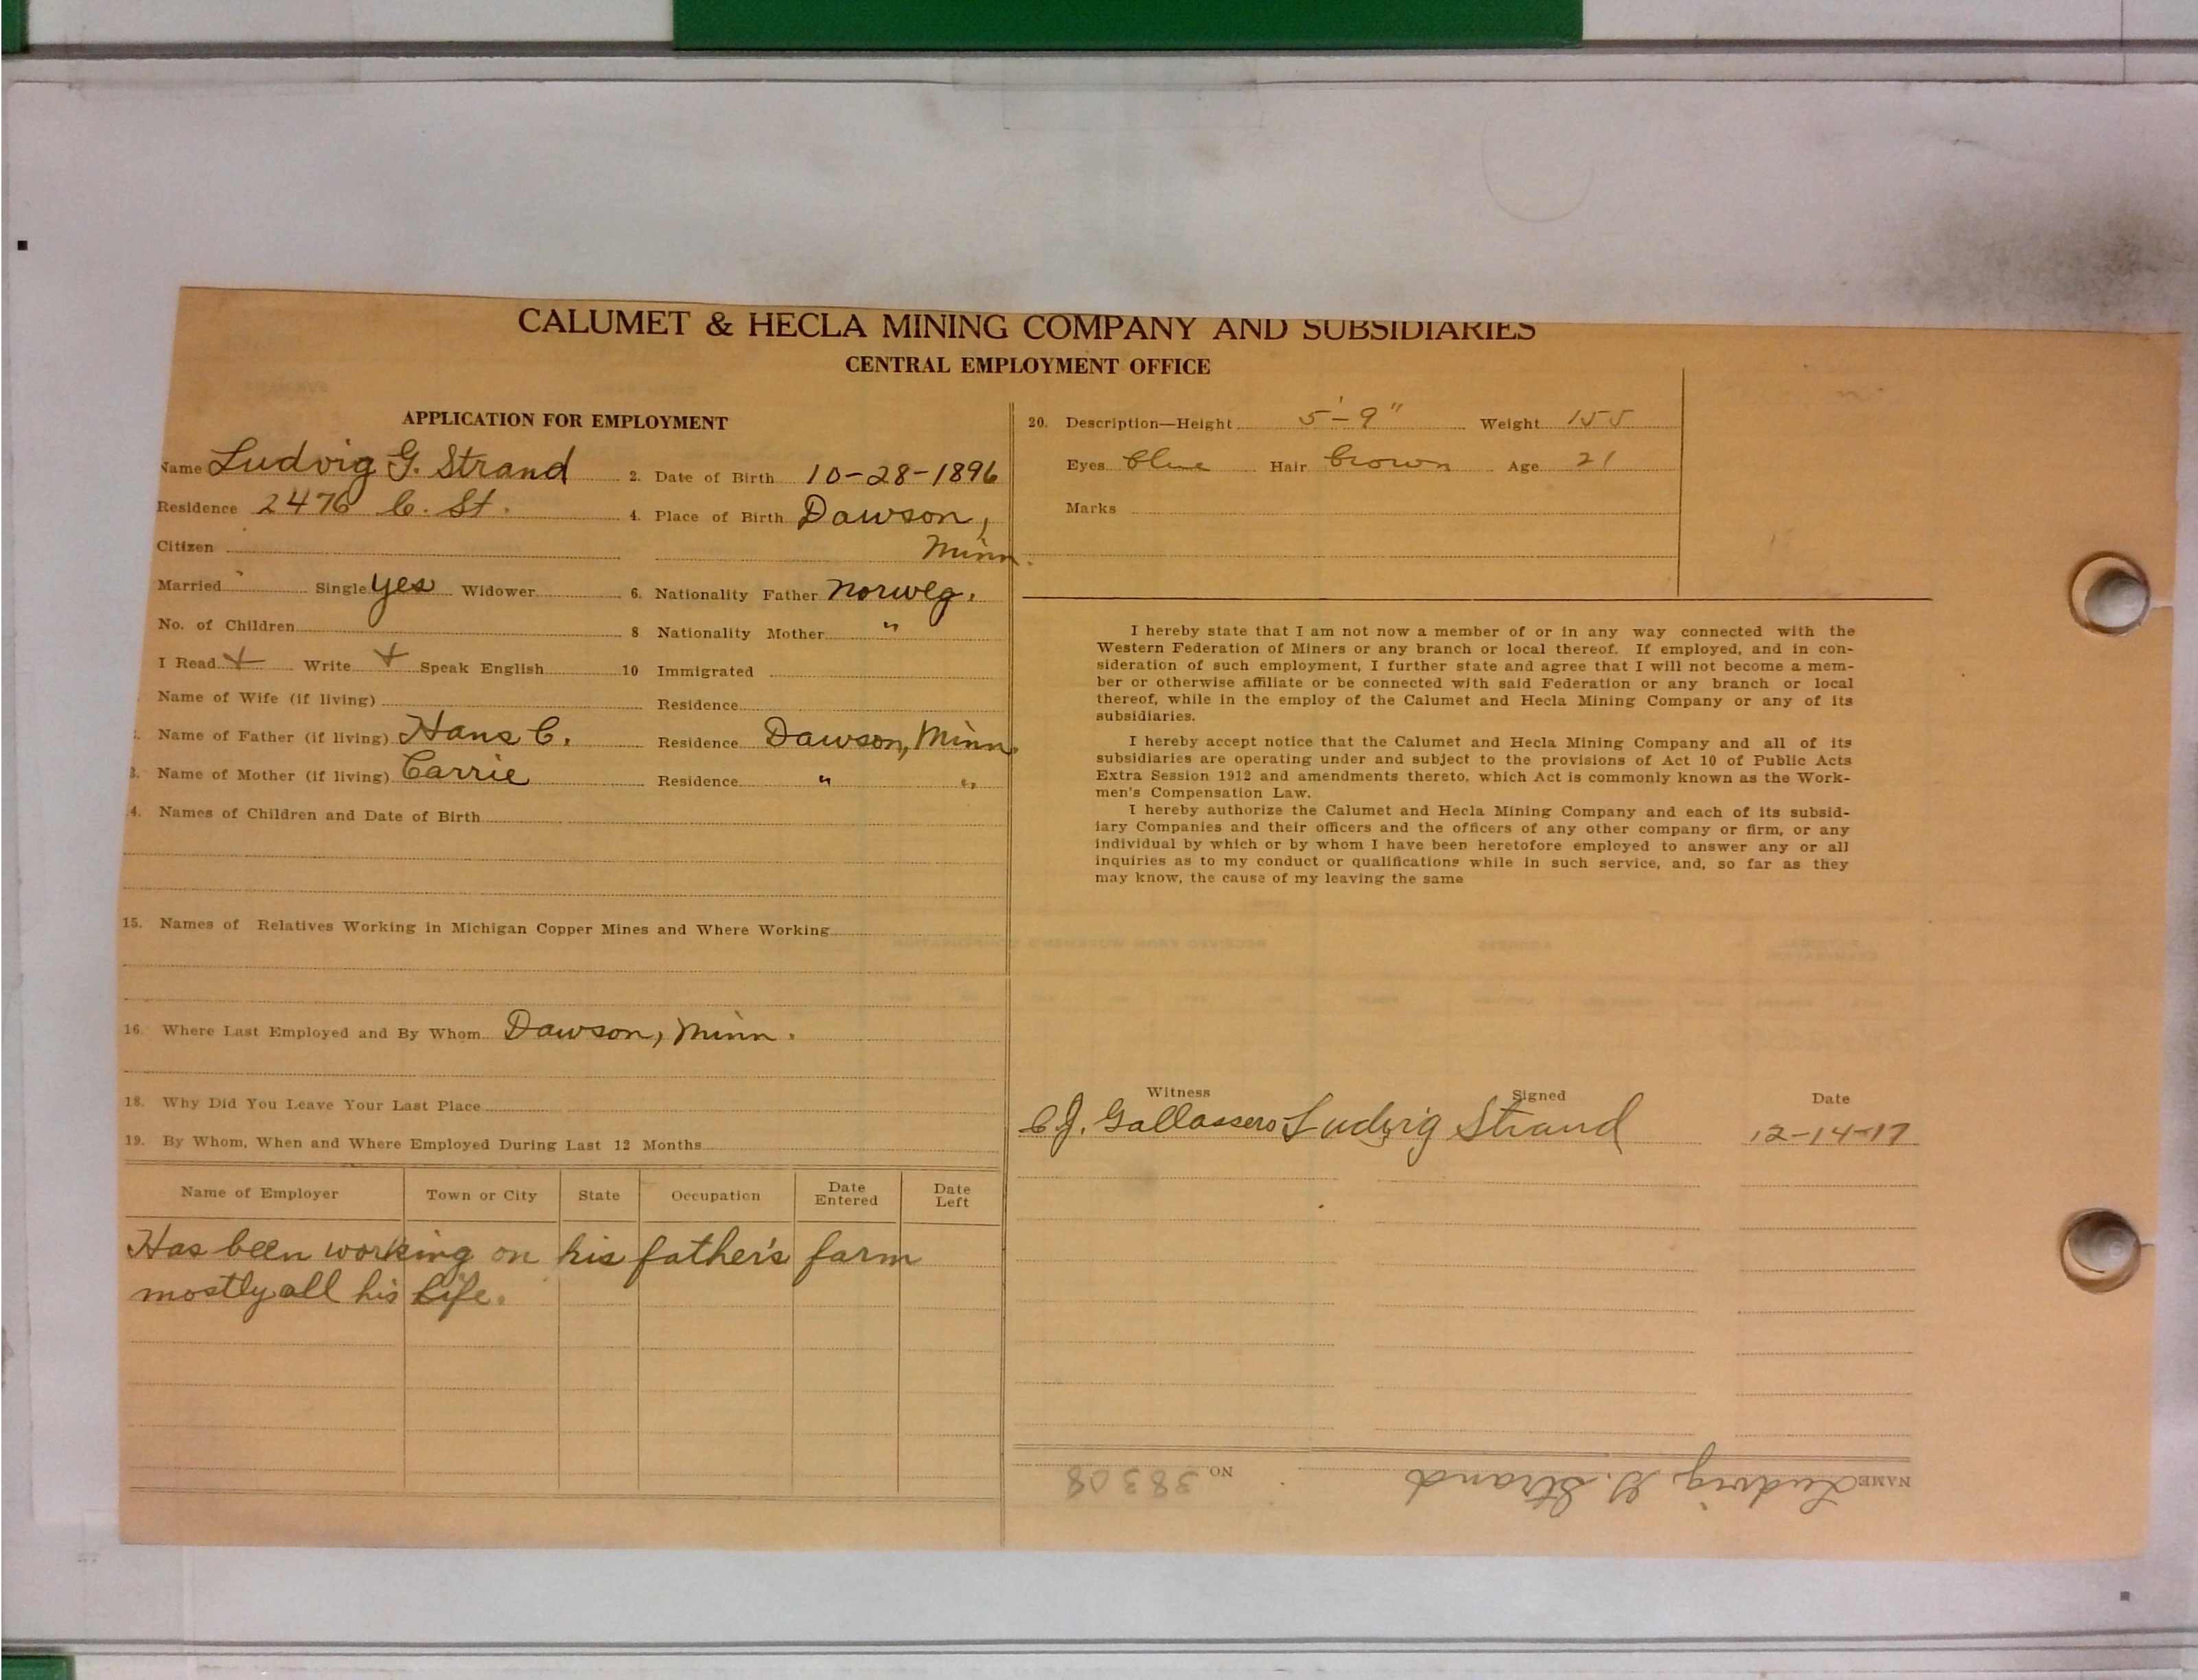 CALUMET & HECLA MINING COMPANY AND SUBSIDIARIES
CENTRAL EMPLOYMENT OFFICE
APPLICATION FOR EMPLOYMENT
Name Ludvig G. Strand 2. Date of Birth 10-28-1896
Residence 2476 C. St. 4. Place of Birth Dawson,
Citizen Minn.
Married Single yes Widower 6. Nationality Father Norweg.
No. of Children 8 Nationality Mother "
I Read + Write + Speak English 10 Immigrated
Name of Wife (if living) Residence
Name of Father (if living) Hans C. Residence Dawson, Minn.
3. Name of Mother (if living) Carrie Residence " "
4. Names of Children and Date of Birth
15. Names of Relatives Working in Michigan Copper Mines and Where Working
16. Where Last Employed and By Whom Dawson, Minn.
18. Why Did You Leave Your Last Place
19. By Whom, When and Where Employed During Last 12 Months
Name of Employer Town or City State Occupation Date Entered Date Left
Has been working on his father's farm
mostly all his life.
20. Description—Height 5'-9" Weight 155
Eyes Blue Hair Brown Age 21
Marks
I hereby state that I am not now a member of or in any way connected with the
Western Federation of Miners or any branch or local thereof. If employed, and in con-
sideration of such employment, I further state and agree that I will not become a mem-
ber or otherwise affiliate or be connected with said Federation or any branch or local
thereof, while in the employ of the Calumet and Hecla Mining Company or any of its
subsidiaries.
I hereby accept notice that the Calumet and Hecla Mining Company and all of its
subsidiaries are operating under and subject to the provisions of Act 10 of Public Acts
Extra Session 1912 and amendments thereto, which Act is commonly known as the Work-
men's Compensation Law.
I hereby authorize the Calumet and Hecla Mining Company and each of its subsid-
iary Companies and their officers and the officers of any other company or firm, or any
individual by which or by whom I have been heretofore employed to answer any or all
inquiries as to my conduct or qualifications while in such service, and, so far as they
may know, the cause of my leaving the same
Witness Signed Date
C.J. Gallassero Ludvig Strand 12-14-17
NAME Ludvig G. Strand NO. 38308